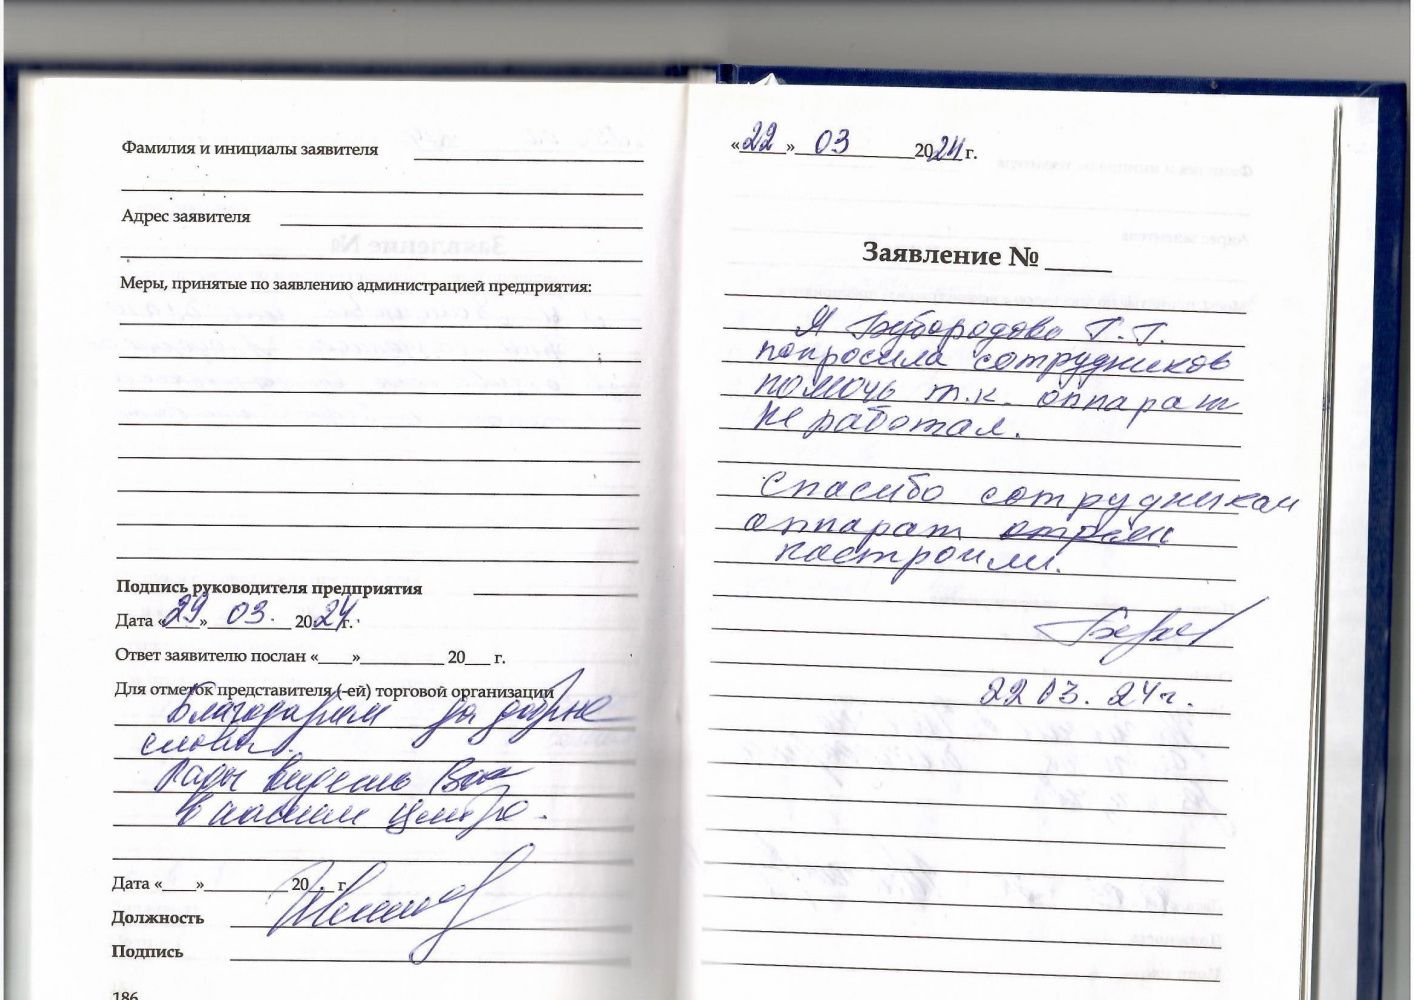 Фамилия и инициалы заявителя
Адрес заявителя
Меры, принятые по заявлению администрацией предприятия:
Подпись руководителя предприятия
Дата «29» 03. 2024 г.
Ответ заявителю послан «___»__________ 20___ г.
Для отметок представителя (-ей) торговой организации
Благодарим за добрые
слова.
Рады видеть Вас
в нашем центре.
Дата «____»__________ 20___ г.
Должность
Подпись
186
«22» 03 2024 г.
Заявление № ____
Я Бубородова Г.Г.
попросила сотрудников
помочь т.к. аппарат
не работал.
Спасибо сотрудникам
аппарат
настроили.
22 03. 24 г.